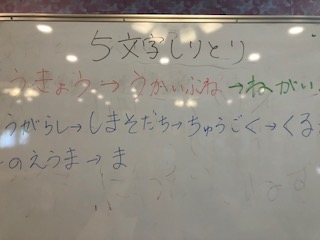 5文字しりとり
うきょう→うかいぶね→ねがい
うがらし→しまそだち→ちゅうごく→くる
のえうま→ま